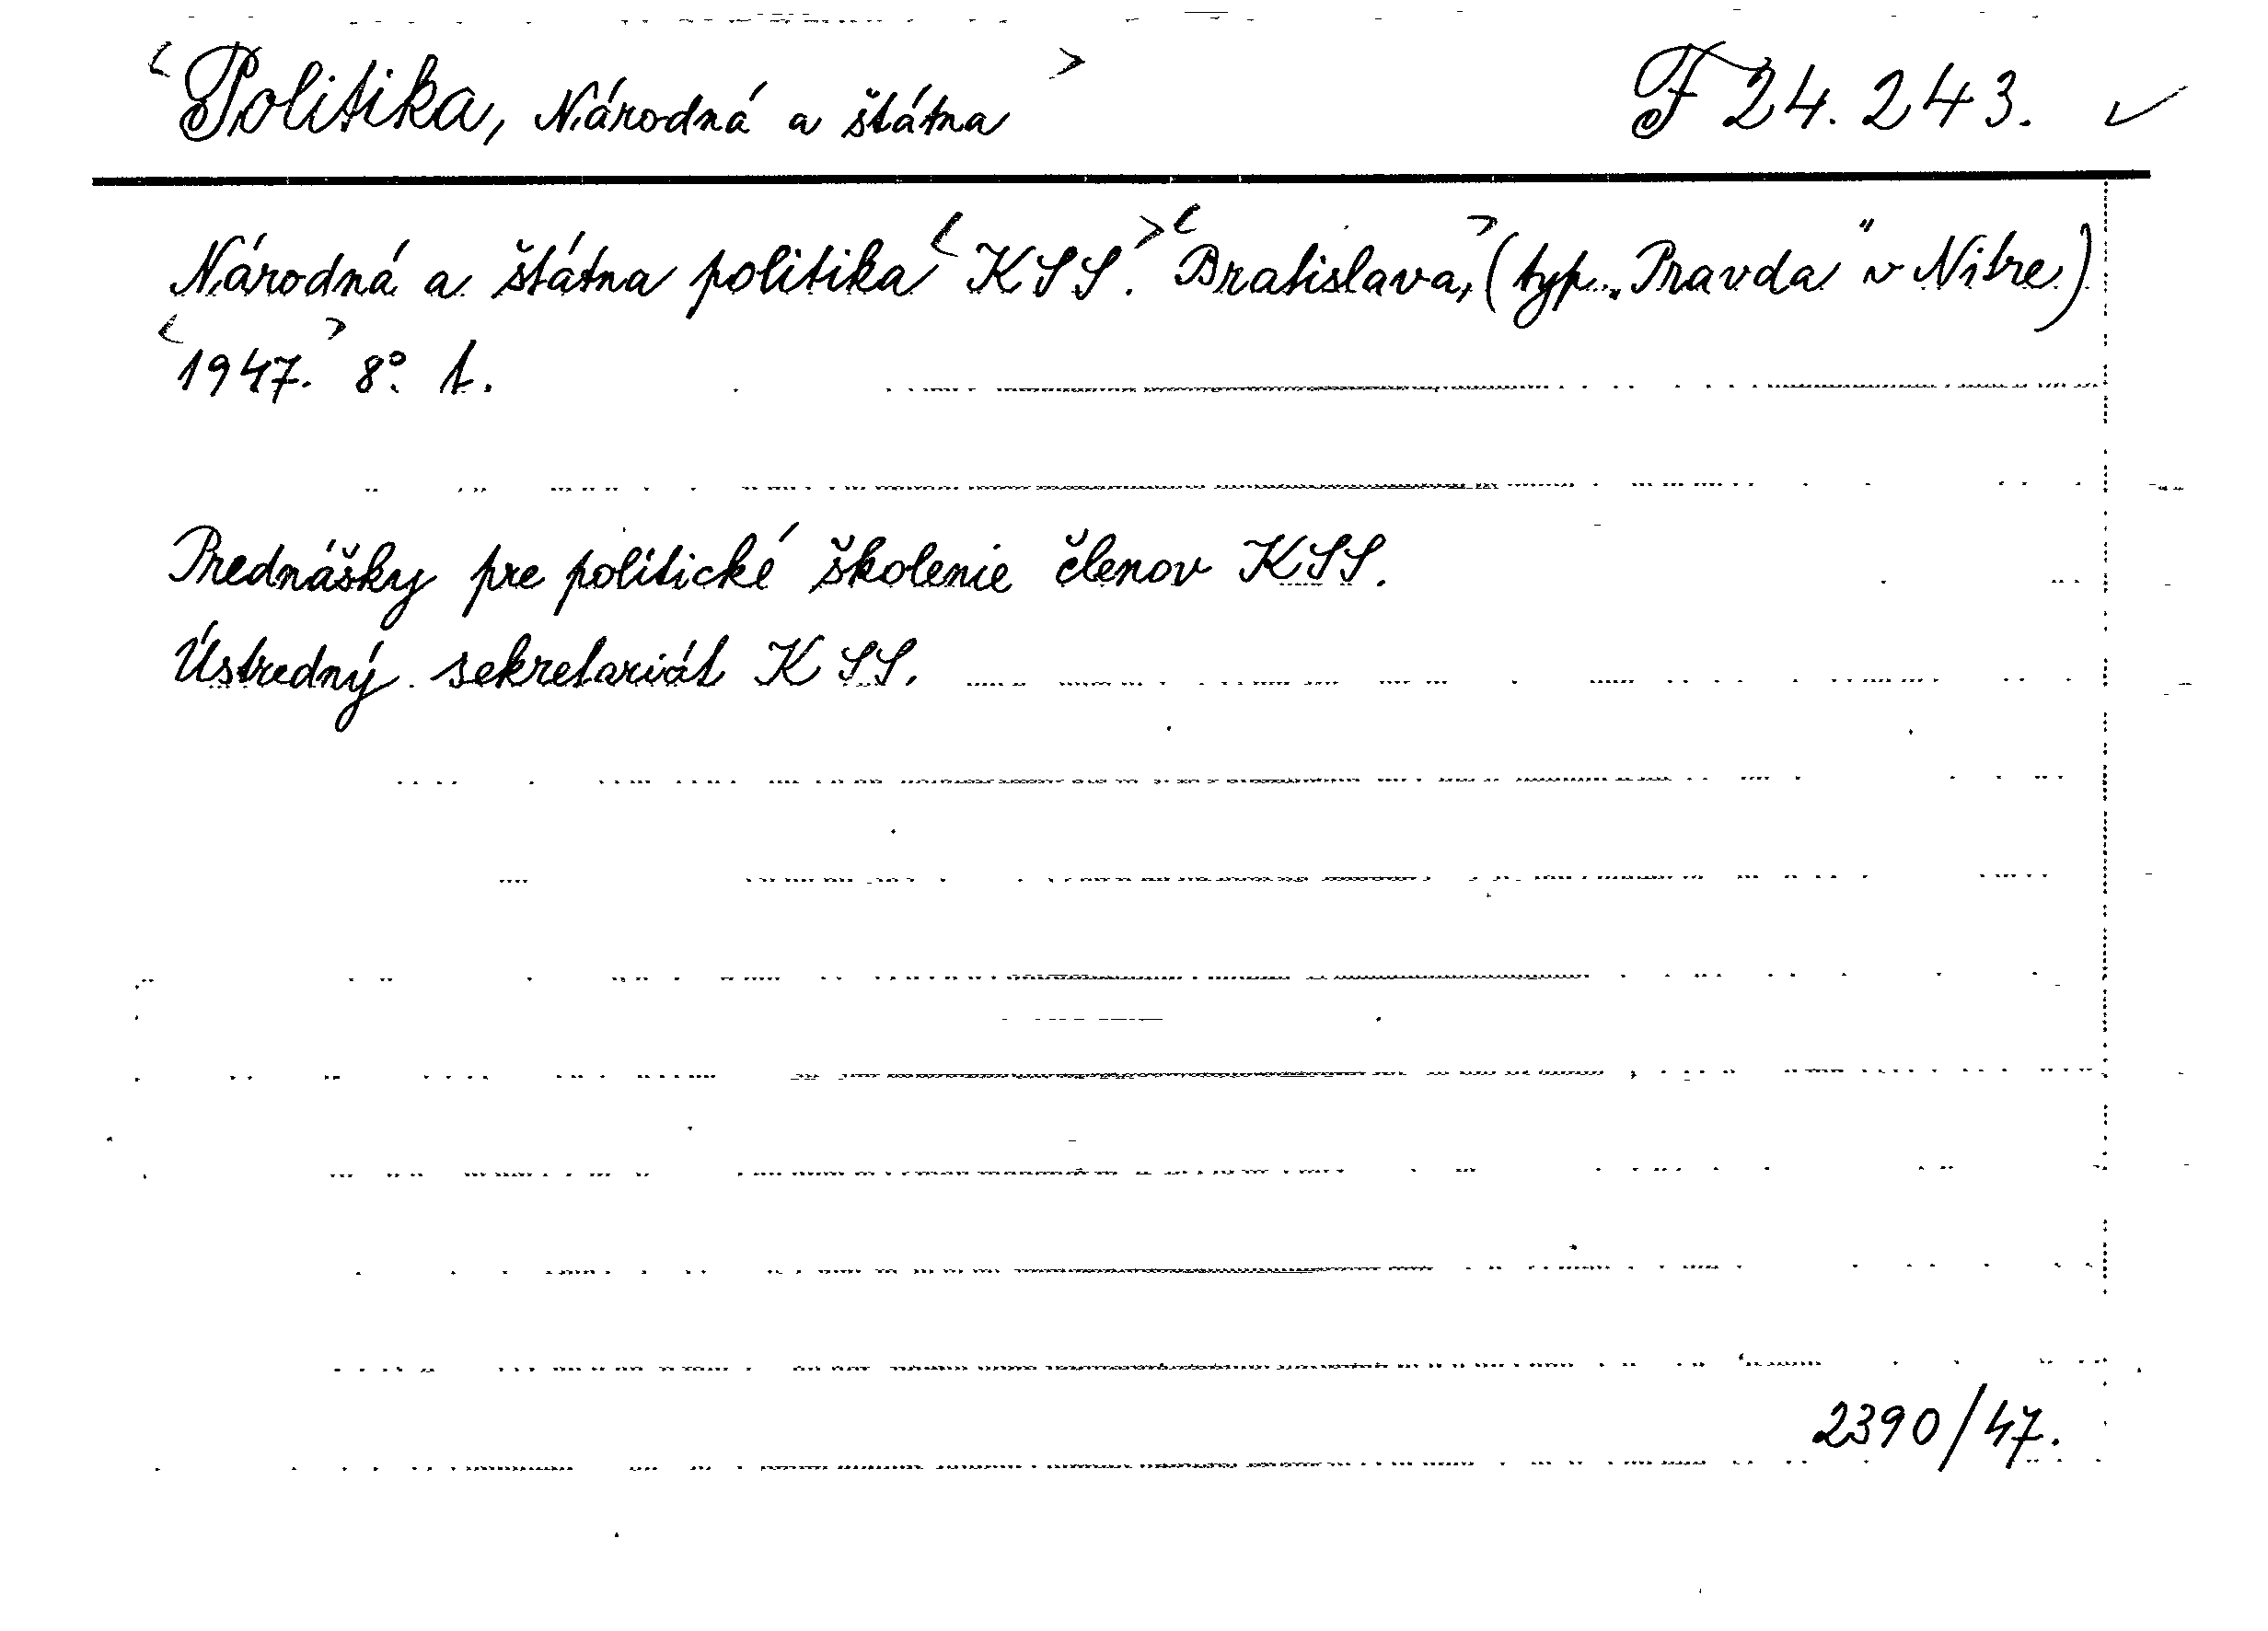 <Politika, Národná a štátna> F 24.243. ✓
Národná a štátna politika <KSS.> <Bratislava,> (typ. „Pravda" v Nitre)
<1947.> 8°. t.
Prednášky pre politické školenie členov KSS.
Ústredný sekretariát KSS.
2390/47.